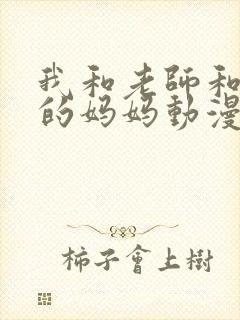 我和老師和
的妈妈動漫
柿子會上樹